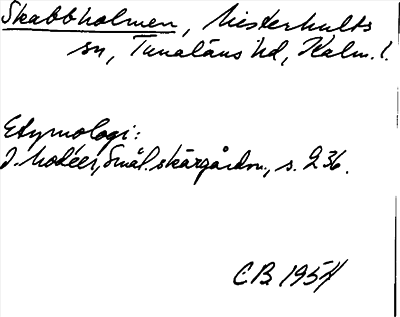 Skabbholmen, Misterhults
sn, Tunaläns hd, Kalm. l.
Etymologi:
I. Modéer, Smål. skärgårdsn., s. 236.
C.B. 1954